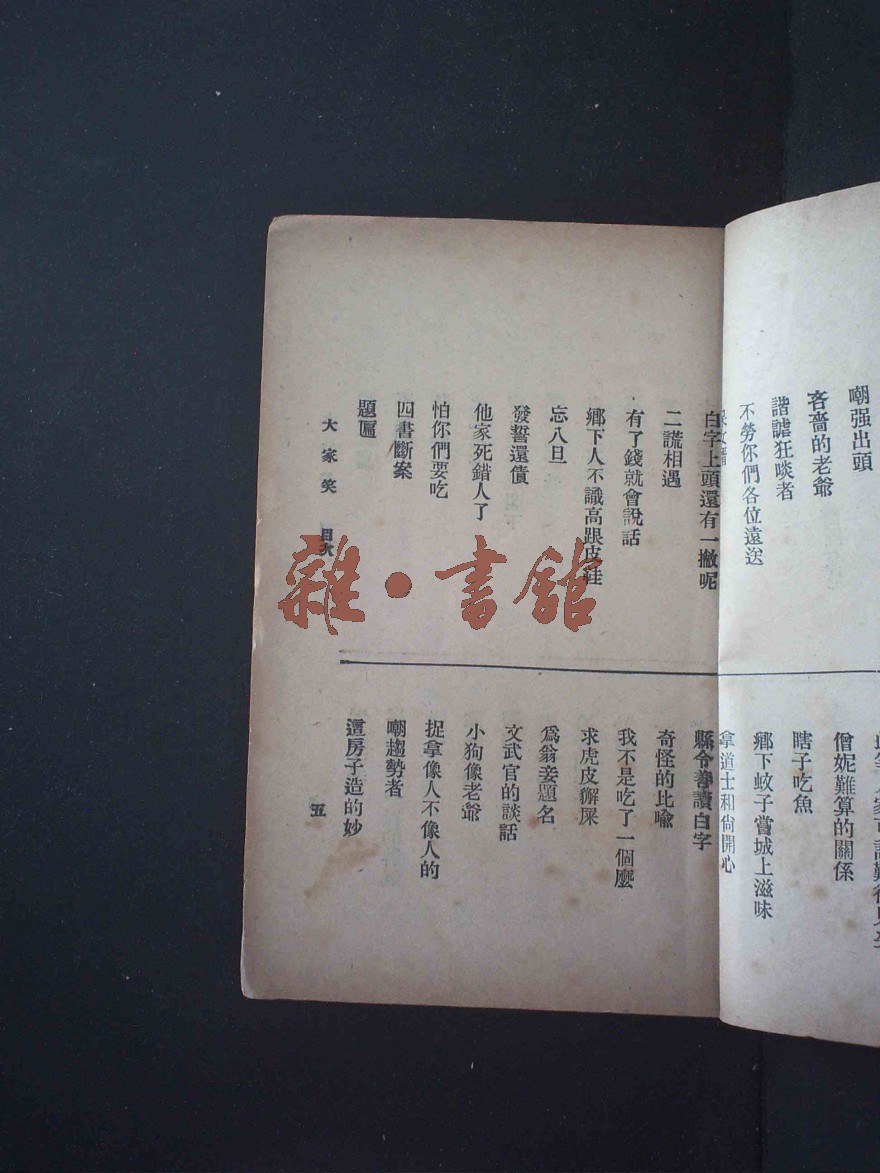 嘲强出頭
吝嗇的老爺
諧謔狂啖者
不勞你們各位遠送
僧妮難算的關係
瞎子吃魚
鄉下蚊子嘗城上滋味
拿道士和尙開心
白字上頭還有一撇呢
二謊相遇
有了錢就會說話
鄉下人不識高跟皮鞋
忘八旦
發誓還債
他家死錯人了
怕你們要吃
四書斷案
題匾
縣令善讀白字
奇怪的比喩
我不是吃了一個麼
求虎皮獬屎
爲翁妾題名
文武官的談話
小狗像老爺
捉拿像人不像人的
嘲趨勢者
這房子造的妙
大家笑 目次
五
雜·書館